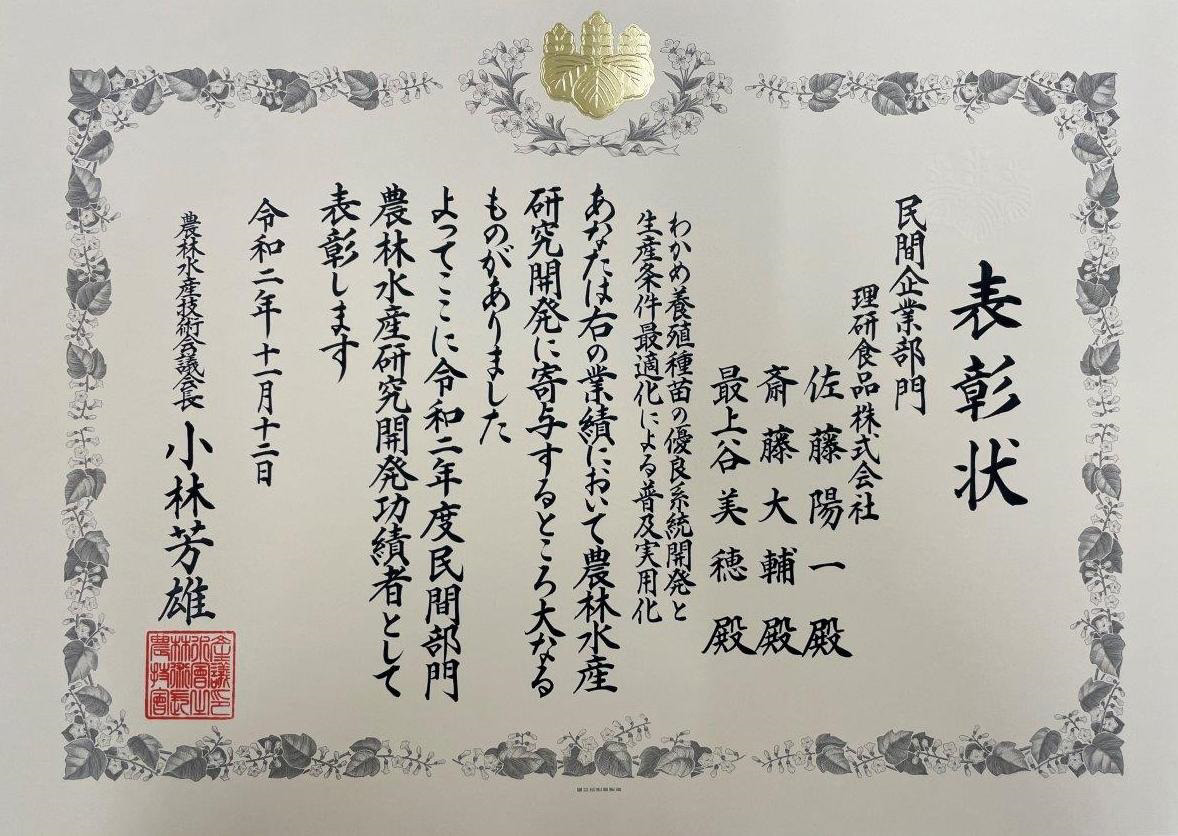 表彰状
民間企業部門
理研食品株式会社
佐藤陽一殿
斎藤大輔殿
最上谷美穂殿
わかめ養殖種苗の優良系統開発と
生産条件最適化による普及実用化
あなたは右の業績において農林水産
研究開発に寄与するところ大なる
ものがありました
よってここに令和二年度民間部門
農林水産研究開発功績者として
表彰します
令和二年十一月十二日
農林水産技術会議会長
小林芳雄